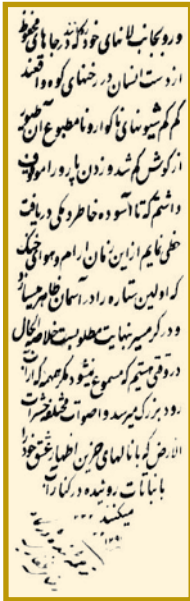 و رو بجانب لانهای خود که در جاهای محفوظ
از دست انسان در رخنهای کوه واقعند
کم کم شیونهای ناگوار و نامطبوع آن طیور
از گوش کم شد و زدن پارو را موقوف
داشتم که تا آسوده خاطر درکی دریافت
حظی نمایم از این زمان آرام و هوای خنک
که اولین ستاره را در آسمان ظاهر میسازد
و در گرمسیر نهایت مطلوبست خلاصه الحال
در وقتی هستیم که مسموع نمیشود مگر همهمه که از آن
رود بزرگ میرسد و اصوات مختلفه حشرات
الارض که با نالهای حزین اظهار عشق خود را
با نباتات روئیده در کنار آب
میکنند
۱۲۹۱